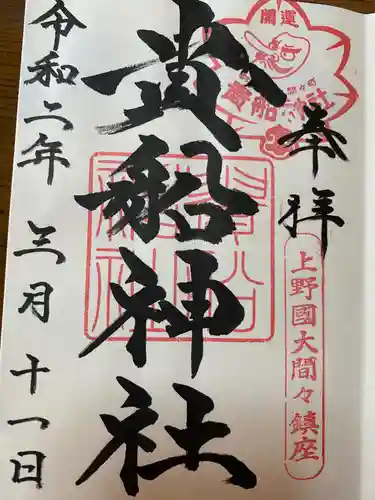 奉拝
上野國大間々鎮座
開運
貴船神社
貴船神社
令和二年三月十一日